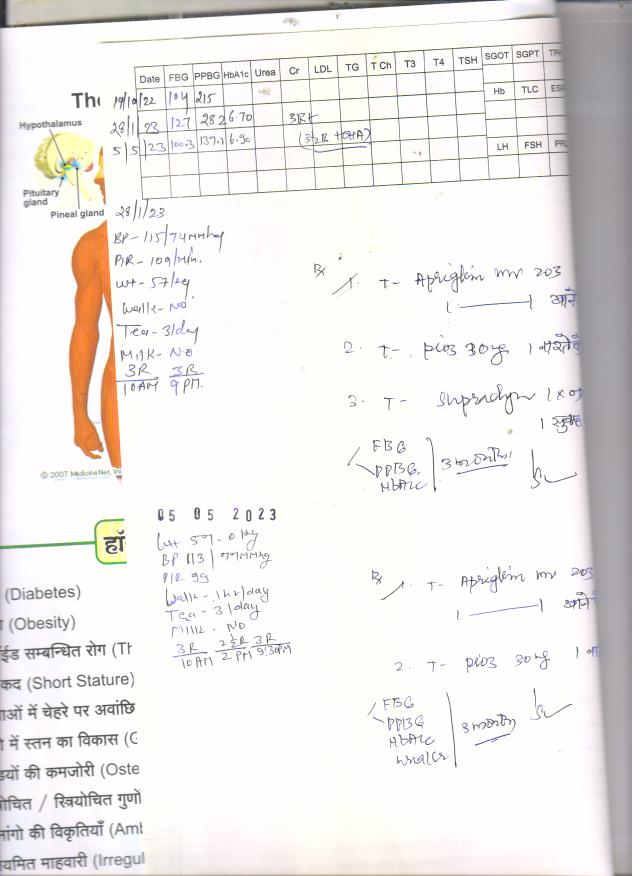 Date FBG PPBG HbA1c Urea Cr LDL TG T Ch T3 T4 TSH SGOT SGPT
Hb TLC
LH FSH PRL
19/10/22 104 215
28/1/23 127 282 6.70 3R+
5/5/23 100.3 139.1 6.90 (3½R + OHA)
The
Hypothalamus
Pituitary
gland
Pineal gland
© 2007 MedicineNet, In
28/1/23
BP - 115/74mmhg
P/R - 109/min.
wt - 57/kg
Walk - No
Tea - 3/day
Milk - No
3R 3R
10AM 9PM.
Rx
1. T- Apriglim mv 203
1 ——— 1 खाने
2. T- pioz 30mg 1
3. T- Supradyn 1 x
1 सुबह
FBG
PPBG
HbA1c
3 months
05 05 2023
Wt 59.0 kg
BP 113/77mmhg
P/R- 99
Walk - 1hr/day
Tea - 3/day
Milk - No
3R 2½R 3R
10AM 2PM 9:30PM
Rx
1. T- Apriglim mv 203
1 ——— 1 खाने
2. T- pioz 30mg 1
FBG
PPBG
HbA1c
3 months
हॉ
(Diabetes)
(Obesity)
ईड सम्बन्धित रोग (Th
कद (Short Stature)
ाओं में चेहरे पर अवांछि
में स्तन का विकास (G
डयों की कमजोरी (Oste
ोचित / स्त्रियोचित गुणों
नांगो की विकृतियाँ (Ambi
यमित माहवारी (Irregul